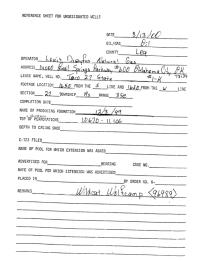 REFERENCE SHEET FOR UNDESIGNATED WELLS
DATE 3/13/00
OIL/GAS Oil
COUNTY Lea
OPERATOR Lewis Natural Gas
ADDRESS Parkway Oklahoma City, OK
LEASE NAME, WELL NO. 27 State
FOOTAGE LOCATION 1650 FROM THE LINE AND 1650 FROM THE W LINE
SECTION 27 TOWNSHIP RANGE 35E
COMPLETION DATE
NAME OF PRODUCING FORMATION
TOP OF PERFORATIONS 10670 - 11,506
DEPTH TO CASING SHOE
C-123 FILED
NAME OF POOL FOR WHICH EXTENSION WAS ASKED
ADVERTISED FOR HEARING CASE NO.
NAME OF POOL FOR WHICH EXTENSION WAS ADVERTISED
PLACED IN BY ORDER NO. R-
REMARKS Wildcat Wolfcamp